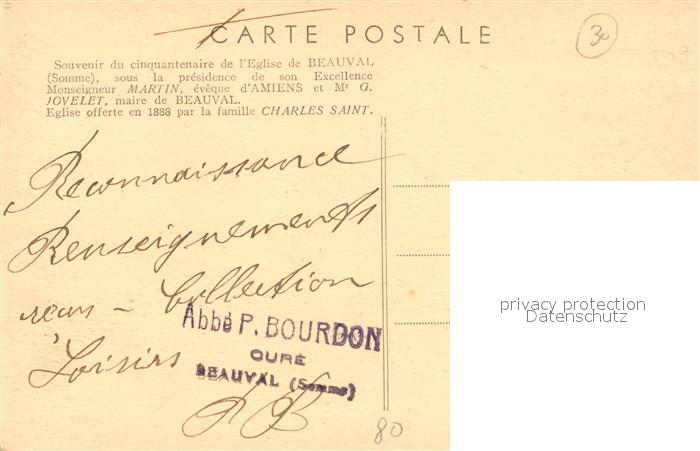 CARTE POSTALE
30
Souvenir du cinquantenaire de l'Eglise de BEAUVAL
(Somme), sous la présidence de son Excellence
Monseigneur MARTIN, évêque d'AMIENS et Mr G.
JOVELET, maire de BEAUVAL.
Eglise offerte en 1888 par la famille CHARLES SAINT.
Reconnaissance
Renseignements
reçus - Collection
Loisirs
Abbé P. BOURDON
CURÉ
BEAUVAL (Somme)
PB
80
privacy protection
Datenschutz